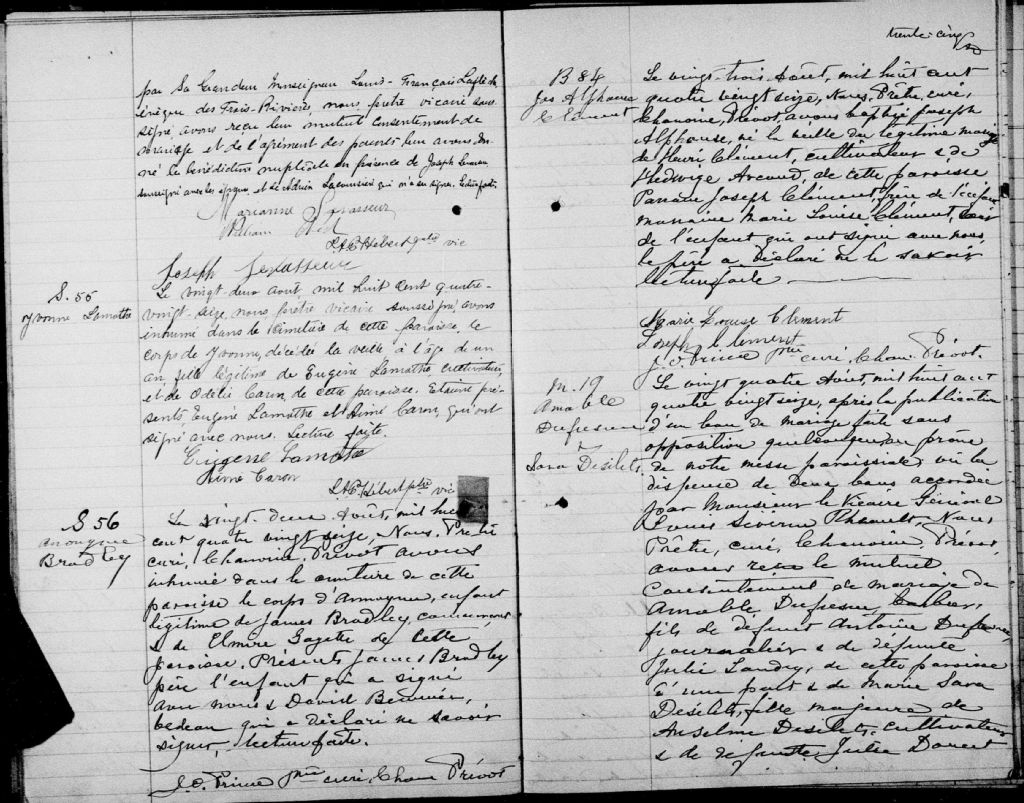 par Sa Grandeur Monseigneur Louis-François Laflèche
évêque des Trois-Rivières, nous prêtre vicaire sous
signé, avons reçu leur mutuel consentement de
mariage et de l'agrément des parents leur avons don
né la bénédiction nuptiale en présence de Joseph
soussigné avec les époux, et de qui n'a su signer. Lecture faite.
Marianne Levasseur
William
Hébert ptre vic
Joseph Levasseur
S. 55
Yvonne Lamothe
Le vingt-deux août mil huit cent quatre-
vingt-seize, nous prêtre vicaire soussigné, avons
inhumé dans le cimetière de cette paroisse, le
corps de Yvonne, décédée la veille, à l'âge de un
an fille légitime de Eugène Lamothe cultivateur,
et de Odélie Caron, de cette paroisse. Etaient pré-
sents, Eugène Lamothe et Aimé Caron, qui ont
signé avec nous. Lecture faite.
Eugene Lamothe
Aimé Caron
Hébert ptre vic
S 56
anonyme
Bradley
Le vingt-deux Août, mil huit
cent quatre vingt seize, Nous, Prêtre
curé, Chanoine Prévot avons
inhumé dans le cimetière de cette
paroisse le corps d'Anonyme, enfant
légitime de James Bradley, commerçant
& de Elmire Gazette de cette
paroisse. Présents James Bradley
père l'enfant qui a signé
avec nous & David
bedeau qui a déclaré ne savoir
signer, lecture faite.
J. O. Prince ptre curé, Chan Prévot
trente-cinq
B 84
Jos Alphonse
Clément
Le vingt-trois Août, mil huit cent
quatre vingt seize, Nous, Prêtre, curé,
Chanoine, Prévot, avons baptisé Joseph
Alphonse, né la veille du légitime mariage
de Henri Clément, cultivateur & de
Hedwige Arcand, de cette paroisse
Parrain Joseph Clément, frère de l'enfant
marraine Marie Louise Clément, sœur
de l'enfant qui ont signé avec nous,
le père a déclaré ne le savoir
lecture faite
Marie Louise Clement
Joseph Clement
J. O. Prince ptre curé, Chan. Prévot.
M. 19
Amable
Dufresne
&
Sara Desilets
Le vingt quatre Août, mil huit cent
quatre vingt seize, après la publication
d'un ban de mariage faite sans
opposition quelconque au prône
de notre messe paroissiale vu la
dispense de deux bans accordée
par Monsieur le Vicaire Général
Louis Séverin Rheault, Nous,
Prêtre, curé, Chanoine, Prévot,
avons reçu le mutuel
consentement de mariage de
Amable Dufresne,
fils de défunt Antoine Dufresne,
journalier & de défunte
Julie Landry, de cette paroisse
d'une part & de Marie Sara
Desilets, fille majeure de
Anselme Desilets, cultivateur
& de défunte Julie Doucet